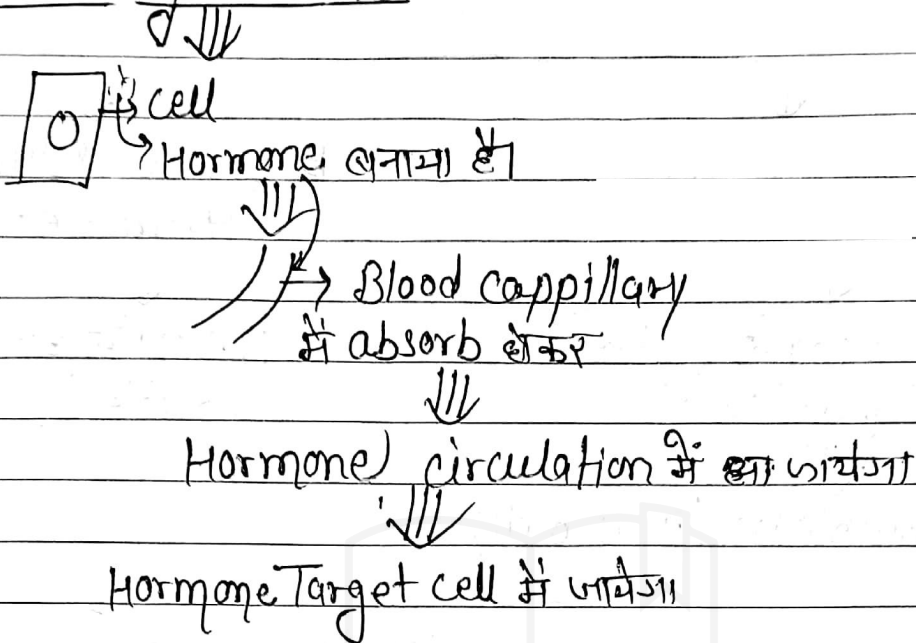 cell
Hormone बनाया है।
Blood cappillary
में absorb होकर
Hormone circulation में आ जायेगा
Hormone Target cell में जायेगा